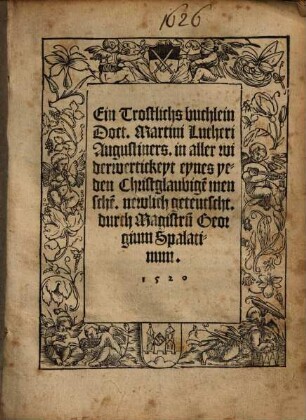 1626
Ein Trostlichs buchlein
Doct. Martini Lutheri
Augustiners. in aller wi
derwertickeyt eynes ye-
den Christglaubigē men
schē. newlich geteutscht.
durch Magistrū Geor
gium Spalati-
num.
1520